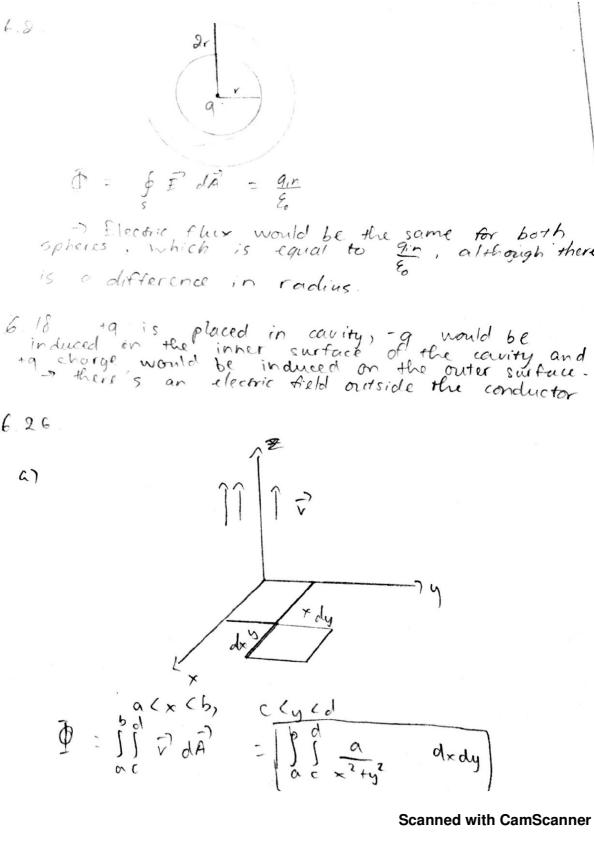 6.2.
2r
r
q
Φ = ∮ E⃗ dA⃗ = qin/ε₀
S
→ Electric flux would be the same for both
spheres, which is equal to qin/ε₀, although there
is a difference in radius.
6 18 +q is placed in cavity, -q would be
induced on the inner surface of the cavity and
+q charge would be induced on the outer surface.
→ there's an electric field outside the conductor
6 26.
a)
z
v⃗
y
x dy
dx y
x
a < x < b, c < y < d
Φ = ∫ₐᵇ ∫c^d v⃗ dA⃗ = ∫ₐᵇ ∫c^d a/(x²+y²) dxdy
Scanned with CamScanner